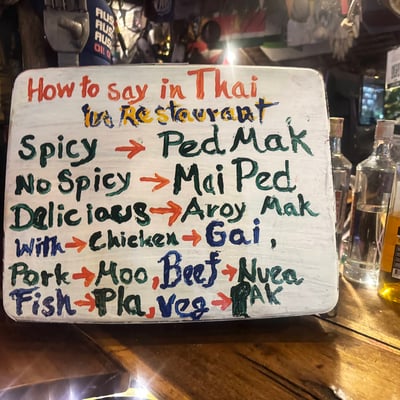 AUS
AUS
AUS
OIL
How to say in Thai
in Restaurant
Spicy → Ped Mak
No Spicy → Mai Ped
Delicious → Aroy Mak
With → Chicken → Gai,
Pork → Moo, Beef → Nuea
Fish → Pla, Veg → PAK